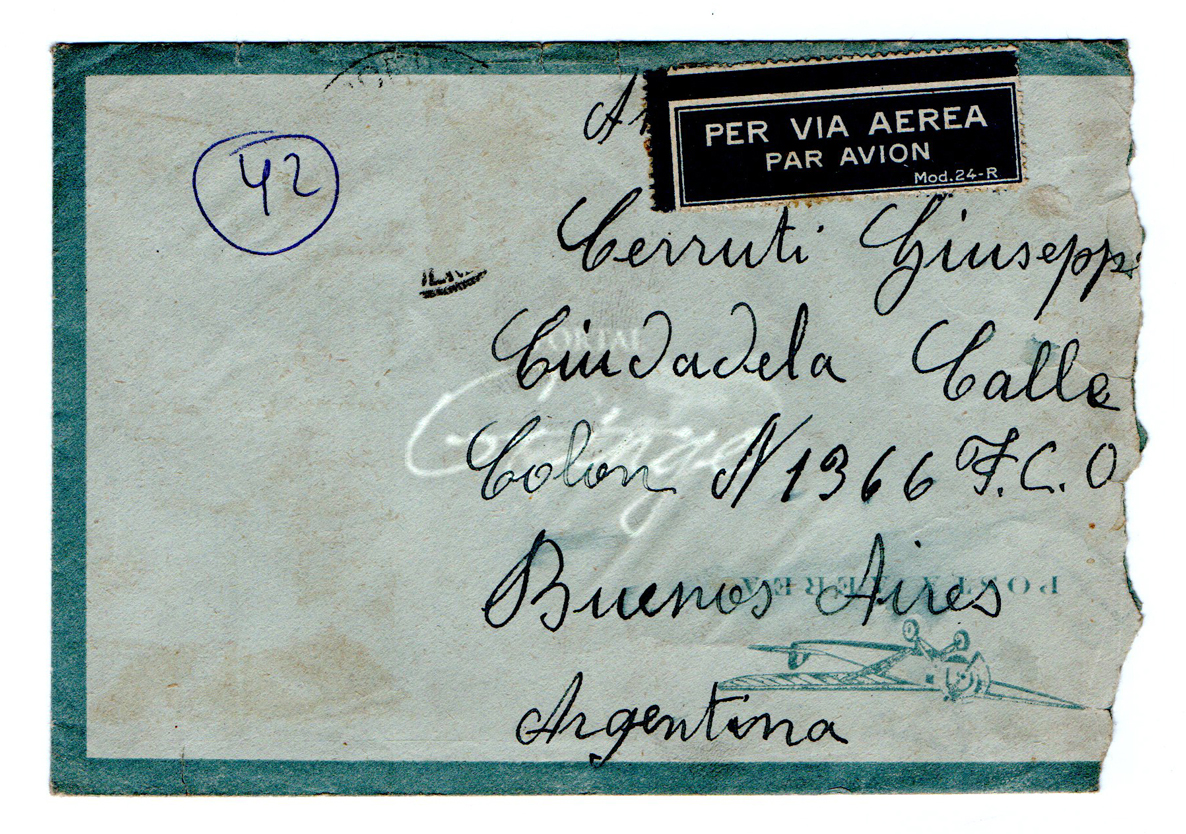 PER VIA AEREA
PAR AVION
Mod.24-R
42
Cerruti Giusepp
Ciudadela Calle
Colon N 1366 F.C.O
POSTA AEREA
Buenos Aires
Argentina